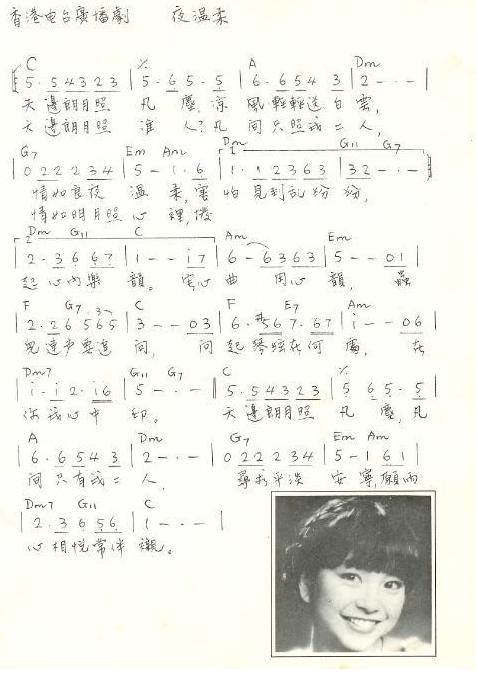 香港电台廣播劇 夜温柔
C ٪ A Dm
5·5 4 3 2 3 | 5·6 5·5 | 6·6 5 4 3 | 2 - · - |
天邊朗月照 凡 塵,涼 風輕輕送白雲,
天邊朗月照 誰 人?凡 間只照我二人,
G7 Em Am Dm G11 G7
0 2 2 2 3 4 | 5 - 1·6 | 1·1 2 3 6 3 | 3 2 - · - |
情如良夜 温 柔,害 怕見到乱紛 紛,
情如明月照心 裡,撥
Dm G11 C Am Em
2·3 6 6 7 | 1 - - i 7 | 6 - 6 3 6 3 | 5 - - 0 1 |
起心內樂 韻。 宅心 曲 用心 韻, 蟲
F G7 C F E7 Am
2·2 6 5 6 5 | 3 - - 0 3 | 6·#5 6 7·6 7 | i - - 0 6 |
兒連声要追 问, 问 起琴弦在何 處, 在
Dm7 G11 G7 C ٪
i·i 2·i 6 | 5 - · - | 5·5 4 3 2 3 | 5 6 5·5 |
你我心中 印。 天邊朗月照 凡 塵,凡
A Dm G7 Em Am
| 6·6 5 4 3 | 2 - · - | 0 2 2 2 3 4 | 5 - 1 6 1 |
间只有我二 人, 尋求平淡 安寧,願两
Dm7 G11 C
| 2·3 6 5 6 | 1 - · - |
心相悦常伴 襯。